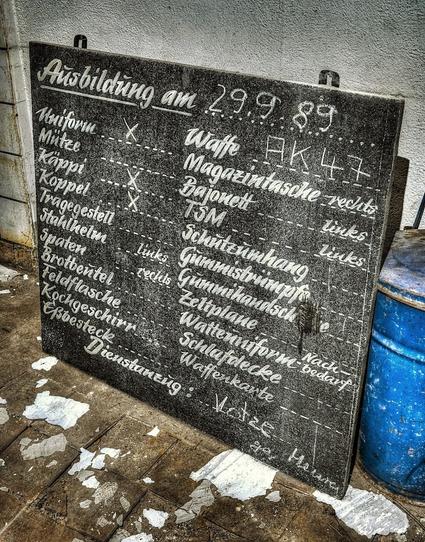 Ausbildung am 29.9.89
Uniform X
Mütze
Käppi X
Koppel X
Tragegestell
Stahlhelm
Spaten links
Brotbeutel rechts
Feldflasche
Kochgeschirr
Eßbesteck
Waffe AK 47
Magazintasche rechts
Bajonett links
TSM links
Schutzumhang
Gummistrümpfe
Zeltplane
Watteuniform Nach-
Schlafdecke bedarf
Waffenkarte
Dienstanzug: